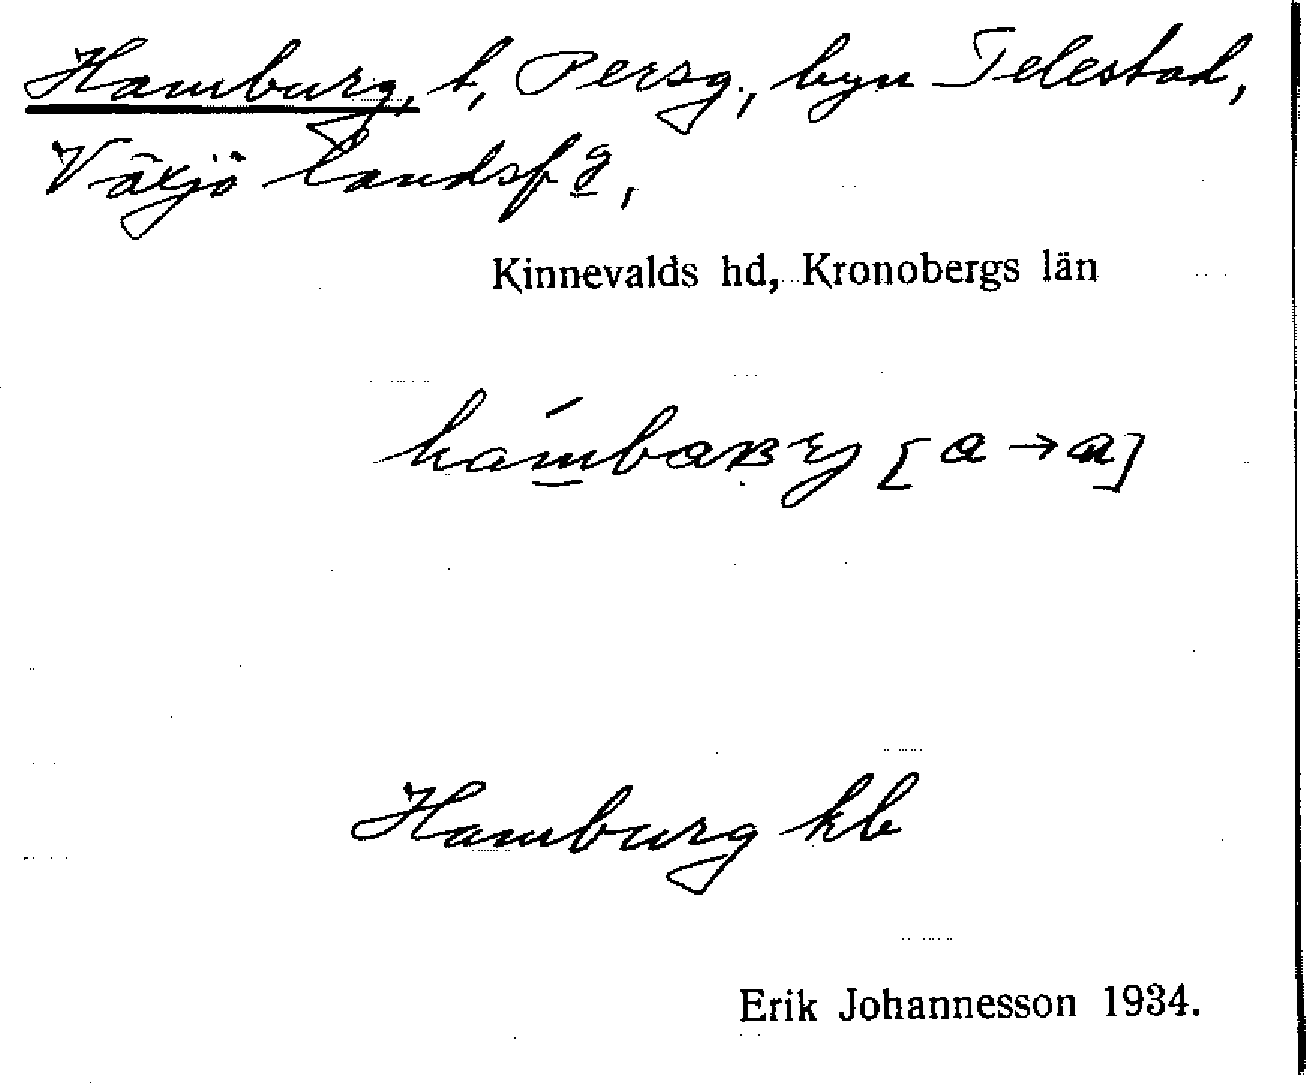 Hamburg, t, Persg., byn Telestad,
Växjö landsfg,
Kinnevalds hd, Kronobergs län
[a → a]
Hamburg kb
Erik Johannesson 1934.